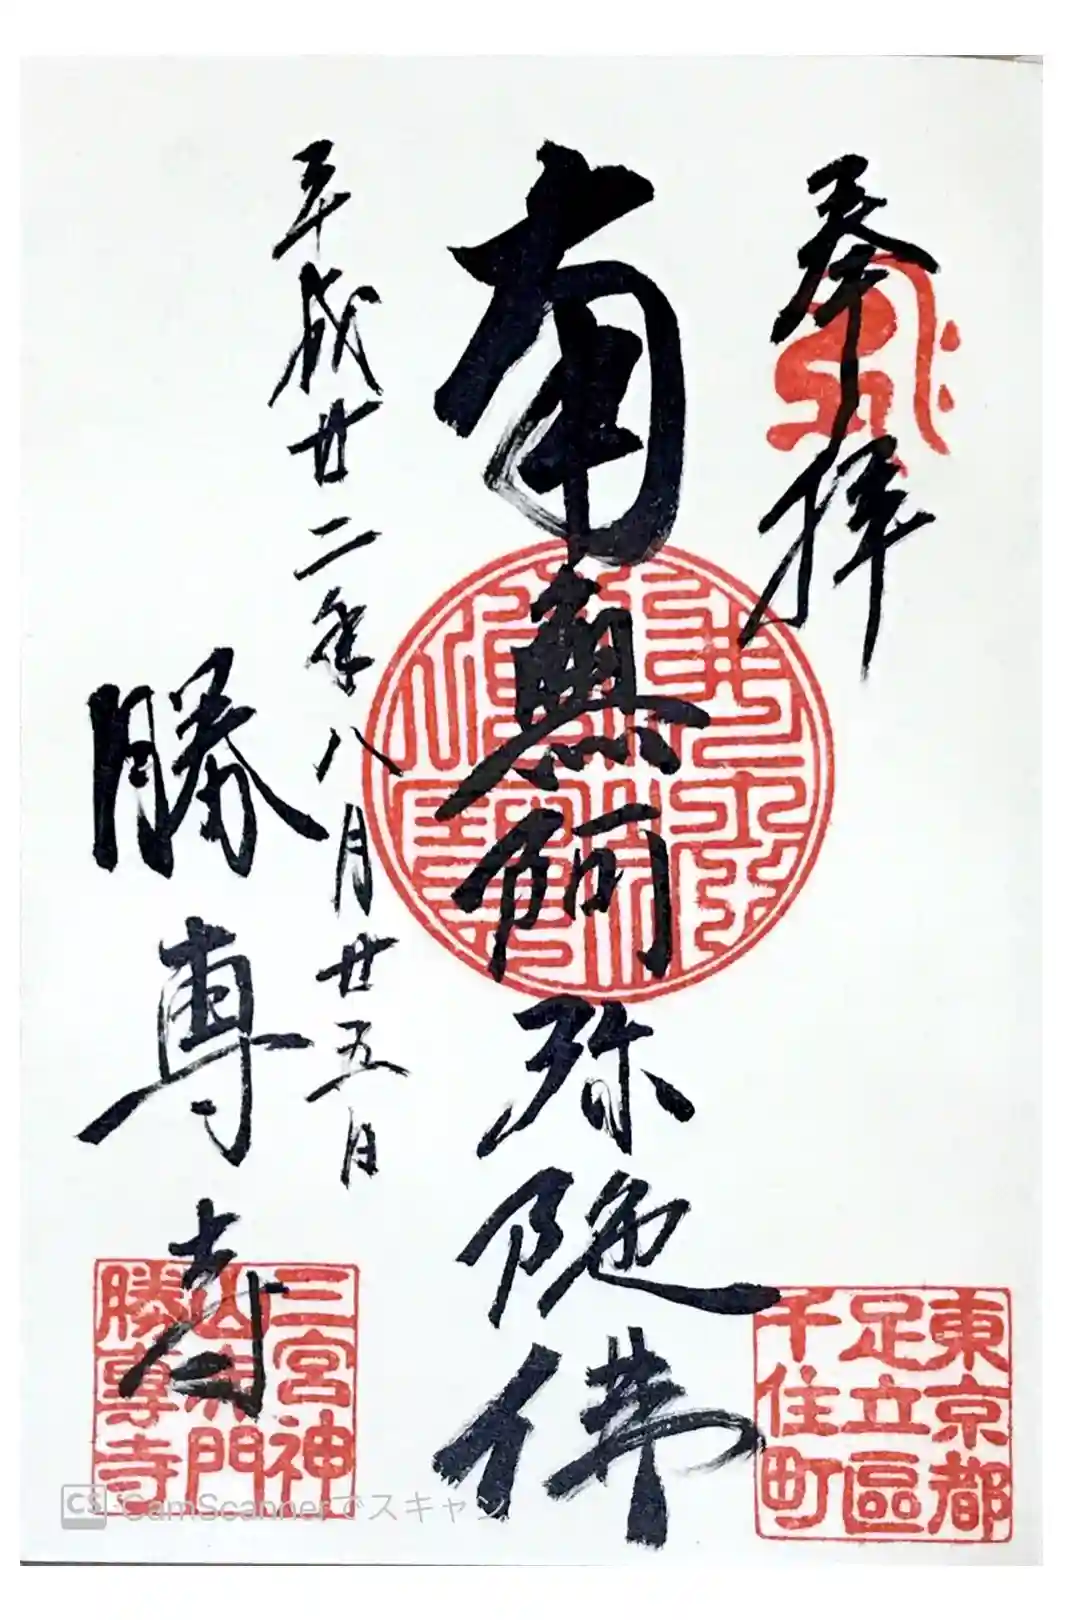 奉拝
南無阿弥陀佛
平成廿二年八月廿五日
勝専寺
東京都
足立區
千住町
三宮神
山赤門
勝專寺
CS CamScannerでスキャン